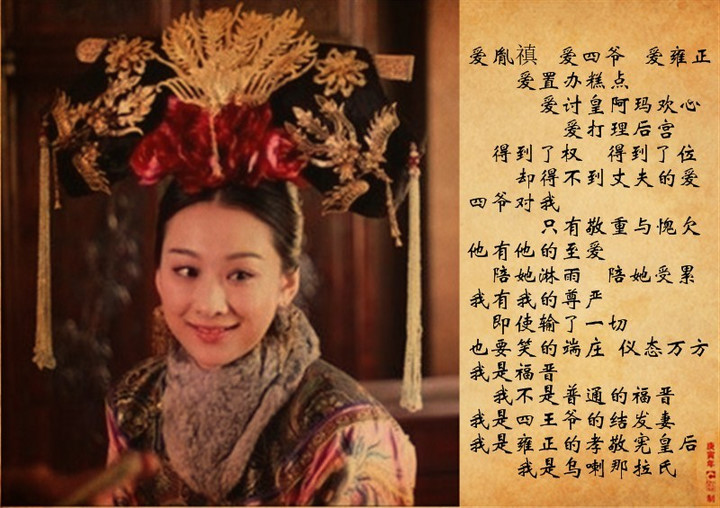 爱胤禛 爱四爷 爱雍正
爱置办糕点
爱讨皇阿玛欢心
爱打理后宫
得到了权 得到了位
却得不到丈夫的爱
四爷对我
只有敬重与愧欠
他有他的至爱
陪她淋雨 陪她受累
我有我的尊严
即使输了一切
也要笑的端庄 仪态万方
我是福晋
我不是普通的福晋
我是四王爷的结发妻
我是雍正的孝敬宪皇后
我是乌喇那拉氏
庚寅年
制